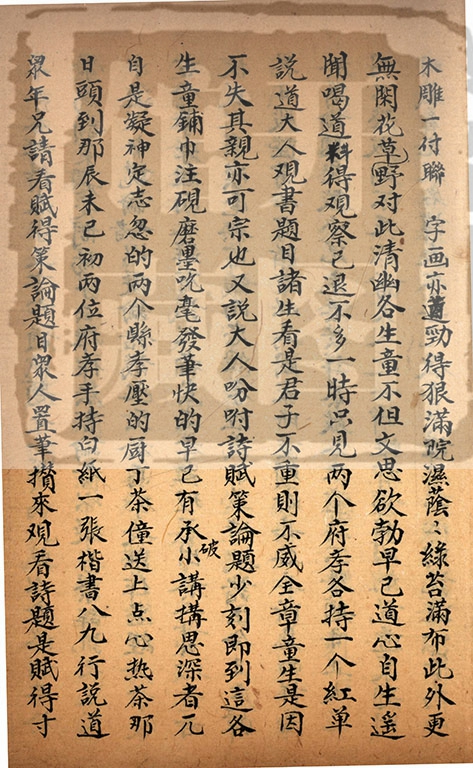 木雕一付聯 字画亦遒勁得狠滿院濕蔭〻綠苔滿布此外更
無閑花草野对此清幽各生童不但文思欲勃早已道心自生遥
聞喝道料得观察已退不多一時只見两个府孝各持一个紅单
説道大人观書題目諸生看是君子不重則不威全章童生是因
不失其親亦可宗也又説大人吩咐詩賦策論題少刻即到這各
生童鋪巾注硯磨墨吮毫發筆快的早已有承破小講搆思深者兀
自是凝神定志忽的两个縣孝壓的厨丁茶僮送上点心热茶那
日頭到那辰末已初两位府孝手持白紙一張楷書八九行説道
衆年兄請看賦得策論題目衆人置筆攅來观看詩題是賦得寸